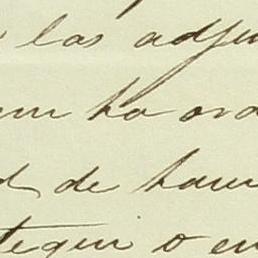 las adju
ha ord
d de hau
tegui o en